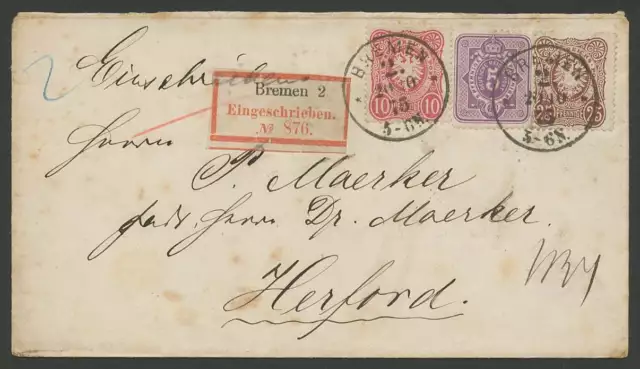 Einschreiben
Bremen 2
Eingeschrieben.
№ 876.
BREMEN
2.
75
5-6N.
10 10
5
BREMEN
2.
75
5-6N.
25 25
Herrn
P. Maerker
Herrn Dr. Maerker.
Herford.